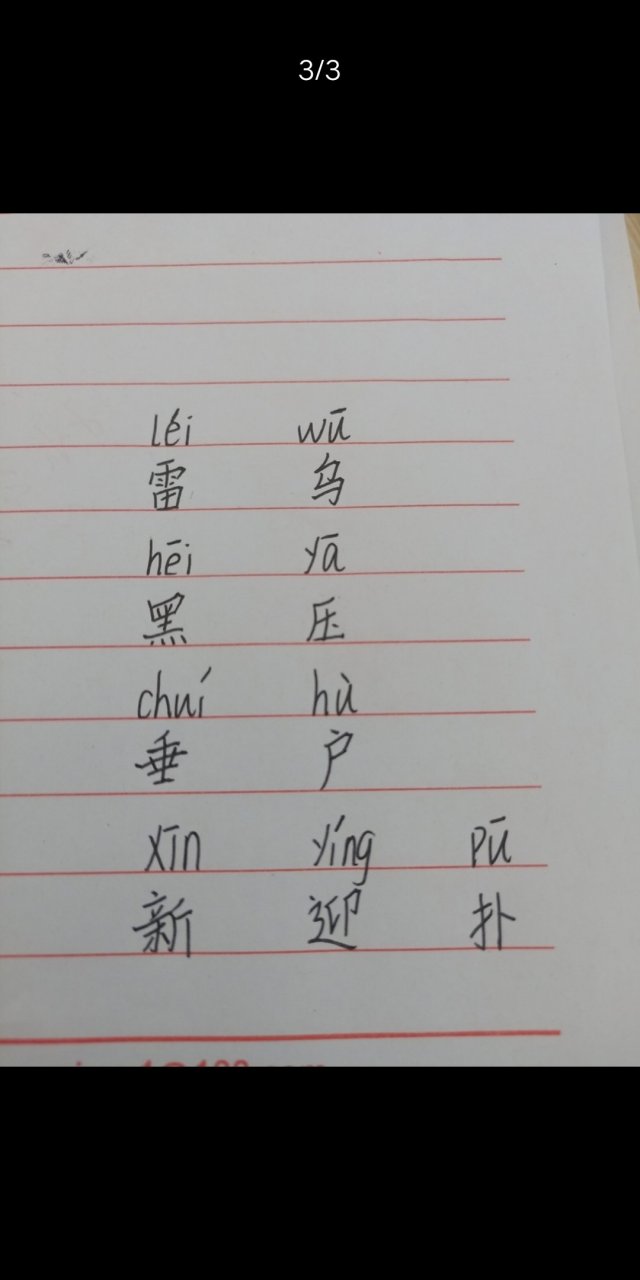 3/3
léi wū
雷 乌
hēi yā
黑 压
chuí hù
垂 户
xīn yíng pū
新 迎 扑